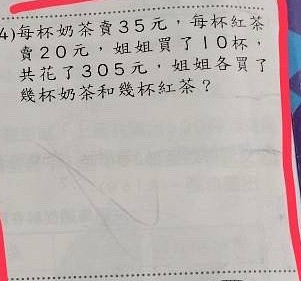 4)每杯奶茶賣35元，每杯紅茶
賣20元，姐姐買了10杯，
共花了305元，姐姐各買了
幾杯奶茶和幾杯紅茶？